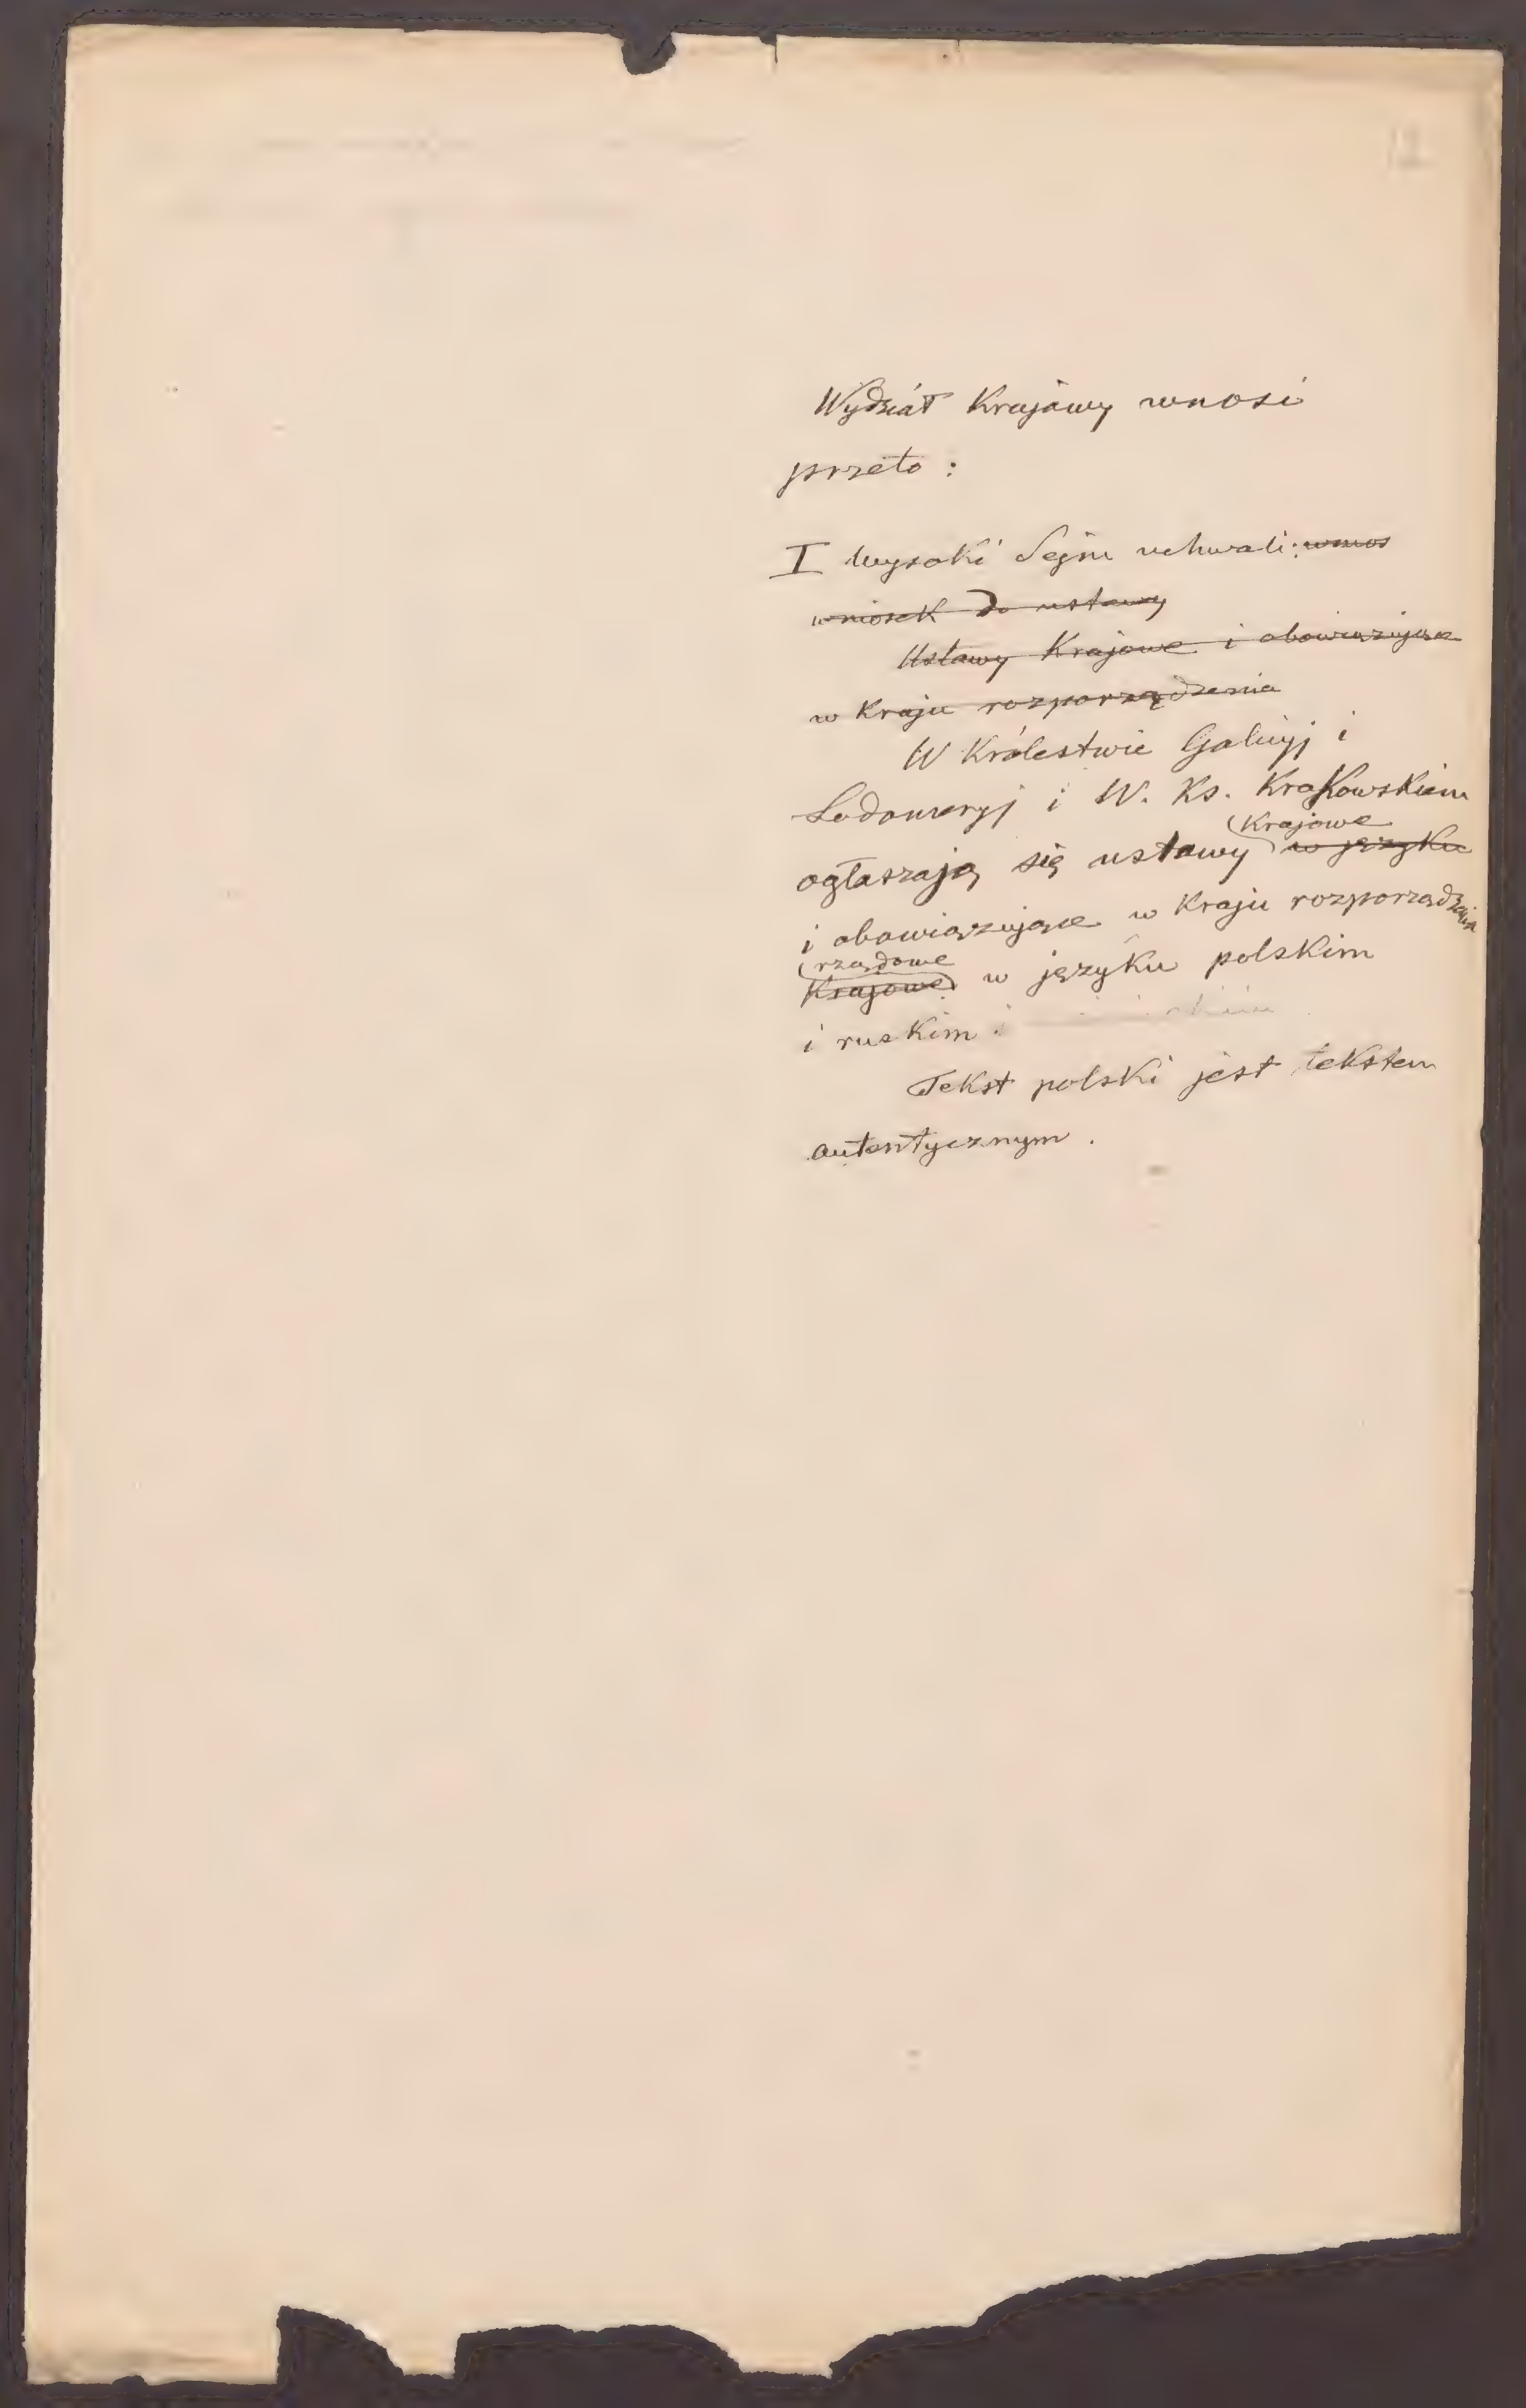 Wydział Krajowy wnosi
przeto :
I Wysoki Sejm uchwali: wnios
wniosek do ustawy
Ustawy Krajowe i obowiązujące
w Kraju rozporządzenia
W Królestwie Galicyj i
Lodomeryj i W. Ks. Krakowskiem
Krajowe
ogłaszają się ustawy w języku
i obowiązujące w Kraju rozporządzenia
rządowe
Krajowe w języku polskim
i ruskim
Tekst polski jest tekstem
autentycznym .